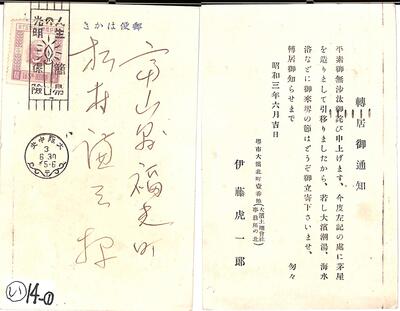 郵便はかき
人生の簡易
光明保険
大阪中央
3
6.30
后5-6
富山縣福光町
松村謙三様
い
14-①
轉居御通知
平素御無沙汰御詫び申上げます、今度左記の處に茅屋
を造りまして引移りましたから、若し大濱潮湯、海水
浴などに御來堺の節はどうぞ御立寄下さいませ、
轉居御知らせまで
匆々
昭和三年六月吉日
堺市大濱北町壹番地
(大濱土地會社
事務所の北)
伊藤虎一郎